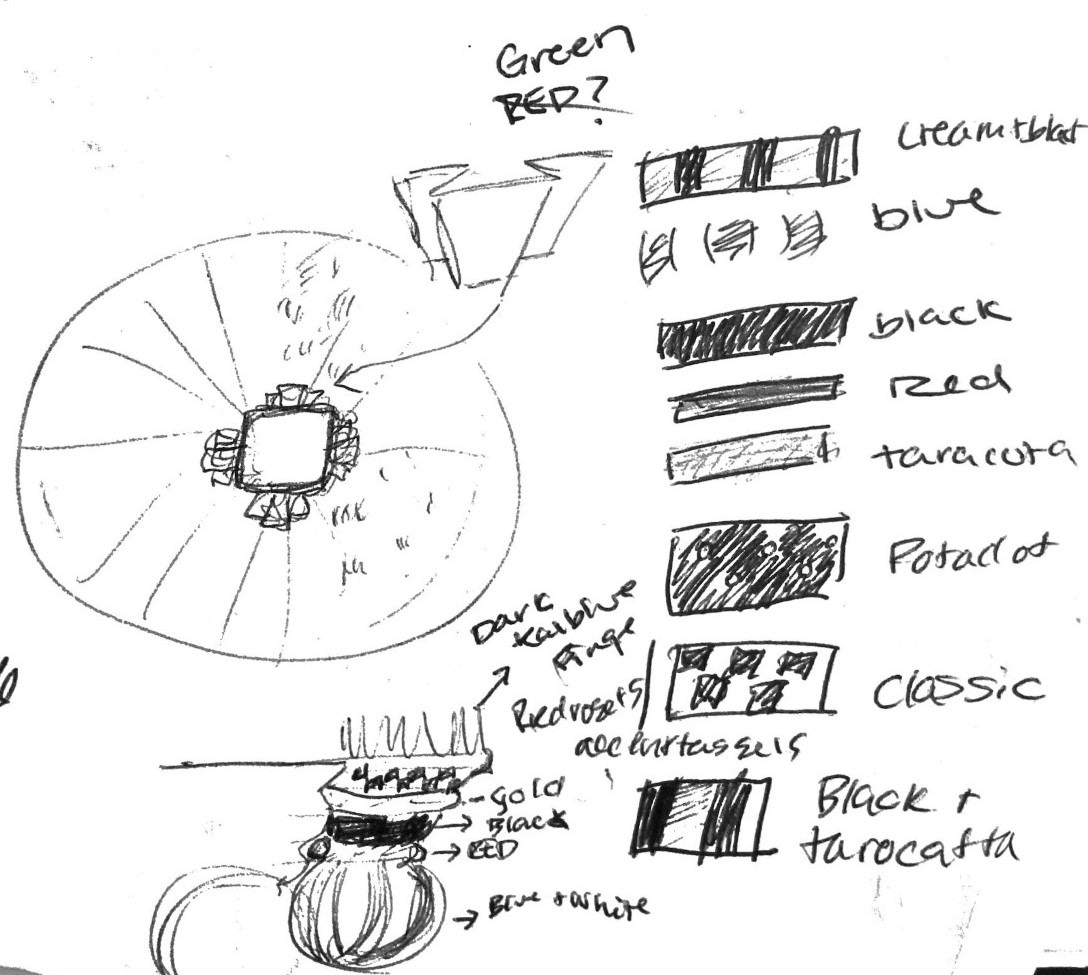 Green
RED?
cream + blak
blue
black
Red
taracota
Potadot
Classic
Black +
tarocatta
Dark
Finge
Red rosets/
accent tassels
Gold
Black
RED
Blue + white